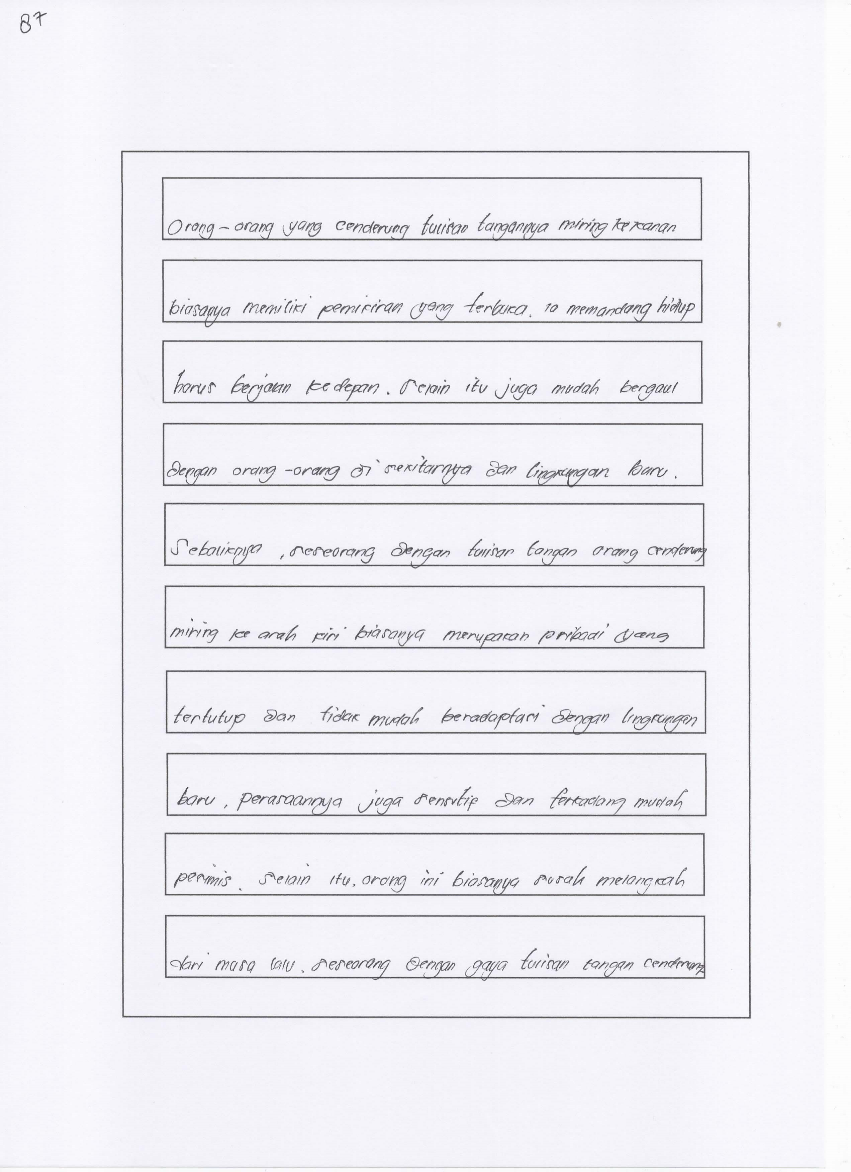 87
Orang-orang yang cenderung tulisan tangannya miring kekanan
biasanya memiliki pemikiran yang terbuka. Ia memandang hidup
harus berjalan kedepan. Selain itu juga mudah bergaul
dengan orang-orang di sekitarnya dan lingkungan baru.
Sebaliknya, seseorang dengan tulisan tangan orang cenderung
miring ke arah kiri biasanya merupakan pribadi yang
tertutup dan tidak mudah beradaptasi dengan lingkungan
baru, perasaannya juga sensitif dan terkadang mudah
pesimis. Selain itu, orang ini biasanya susah melangkah
dari masa lalu. Seseorang dengan gaya tulisan tangan cenderung